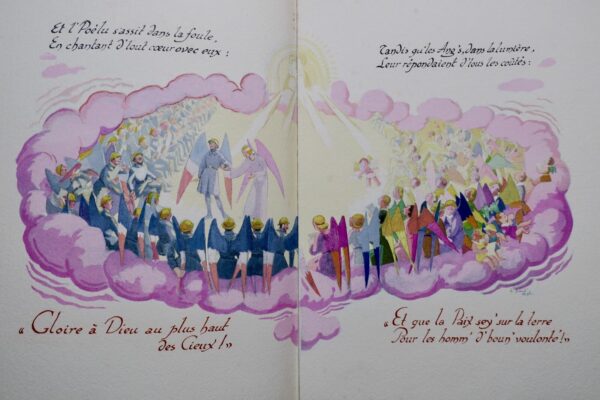 Et l'Poélu s'assit dans la foule,
En chantant d'tout cœur avec eux :
« Gloire à Dieu au plus haut
des Cieux ! »
Tandis qu'les Ang's, dans la lumière,
Leur répondaient d'tous les coûtés :
« Et que la Paix soy' sur la terre
Pour les homm's d'boun' voulonté ! »